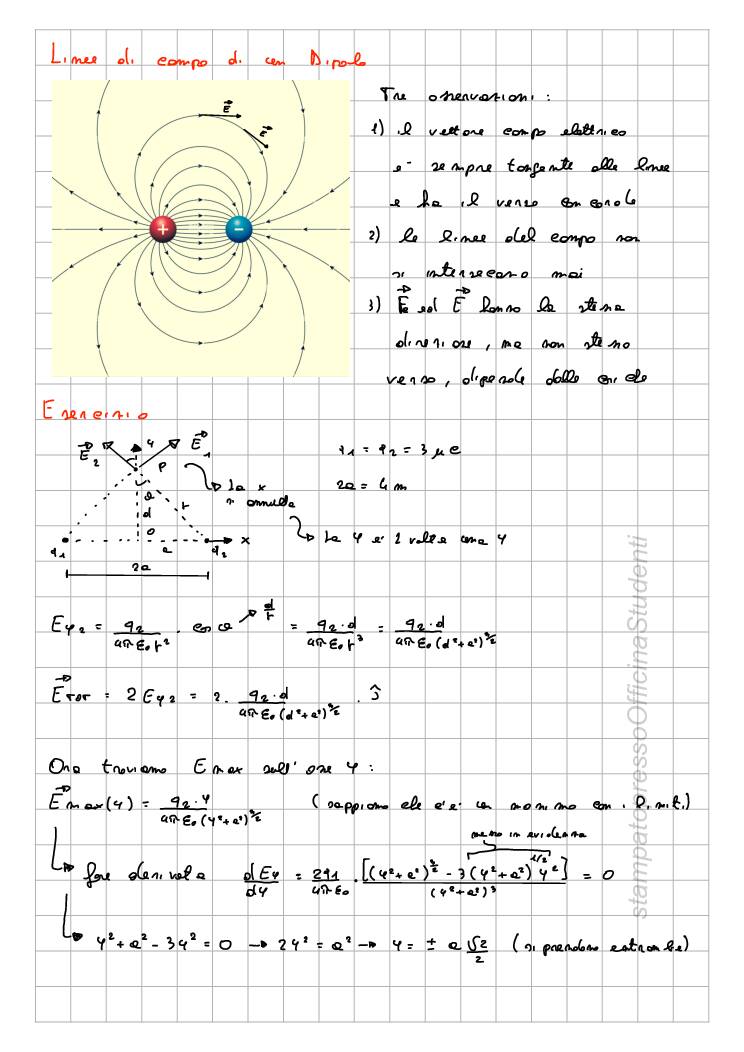 Linee di campo di un Dipolo
Tre osservazioni :
1) il vettore campo elettrico
e' sempre tangente alle linee
e ha il verso concorde
2) le linee del campo non
si intersecano mai
3) Fe ed E hanno la stessa
direzione, ma non stesso
verso, dipende dalle cariche
E
E
+
-
Esercizio
E2 y E1
P
q1 = q2 = 3 μC
2a = 4 m
La x
si annulla
La y e' 2 volte una y
θ
d
r
O
a
q1
q2
x
2a
Ey2 = q2/4πε0r² · cos θ → d/r = q2·d/4πε0r³ = q2·d/4πε0(d²+a²)^3/2
ETOT = 2Ey2 = 2 · q2·d/4πε0(d²+a²)^3/2 · ĵ
Ora troviamo E max sull' asse y :
E max(y) = q2·y/4πε0(y²+a²)^3/2 (sappiamo che c'e' un massimo con i limiti)
messo in evidenza
fare derivata dEy/dy = 2q1/4πε0 · [(y²+a²)^3/2 - 3(y²+a²)^1/2 y²]/(y²+a²)³ = 0
y²+a²-3y² = 0 → 2y² = a² → y = ± a √2/2 (si prendono entrambe)
stampatopressoOfficinaStudenti